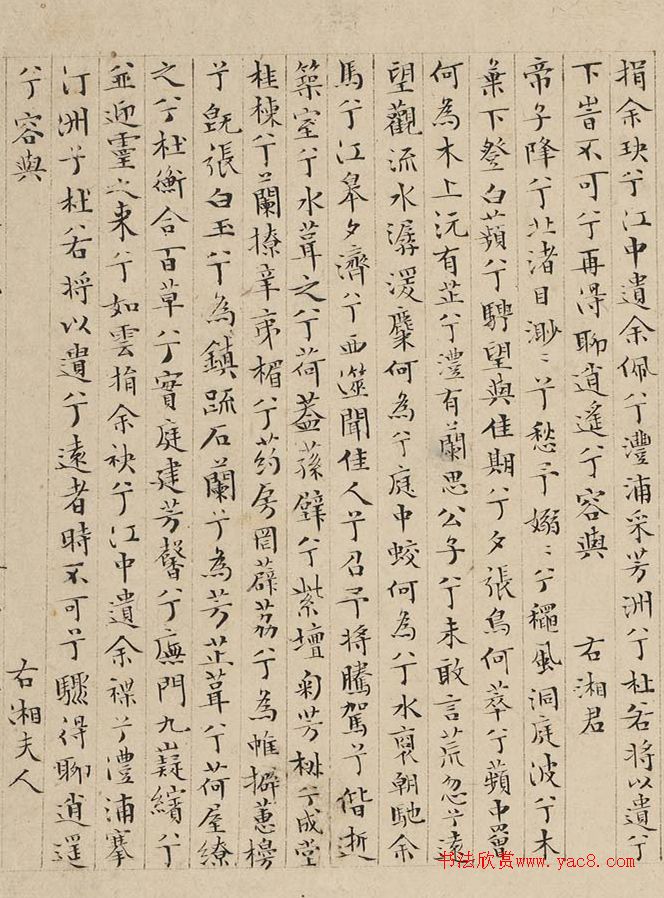 捐余玦兮江中遺余佩兮澧浦采芳洲兮杜若將以遺兮
下旹不可兮再得聊逍遙兮容與 右湘君
帝子降兮北渚目渺〻兮愁予嫋〻兮穐風洞庭波兮木
葉下登白蘋兮騁望與佳期兮夕張鳥何萃兮蘋中罾
何為木上沅有芷兮澧有蘭思公子兮未敢言荒忽兮遠
望觀流水潺湲麋何為兮庭中蛟何為兮水裔朝馳余
馬兮江皋夕濟兮西澨聞佳人兮召予將騰駕兮偕逝
築室兮水葺之兮荷蓋蓀壁兮紫壇匊芳椒兮成堂
桂棟兮蘭橑辛夷楣兮葯房罔薜荔兮為帷擗蕙櫋
兮既張白玉兮為鎮疏石蘭兮為芳芷葺兮荷屋繚
之兮杜衡合百草兮實庭建芳馨兮廡門九嶷繽兮
並迎靈之來兮如雲捐余袂兮江中遺余褋兮澧浦搴
汀洲兮杜若將以遺兮遠者時不可兮驟得聊逍遙
兮容與 右湘夫人
书法欣赏www.yac8.com